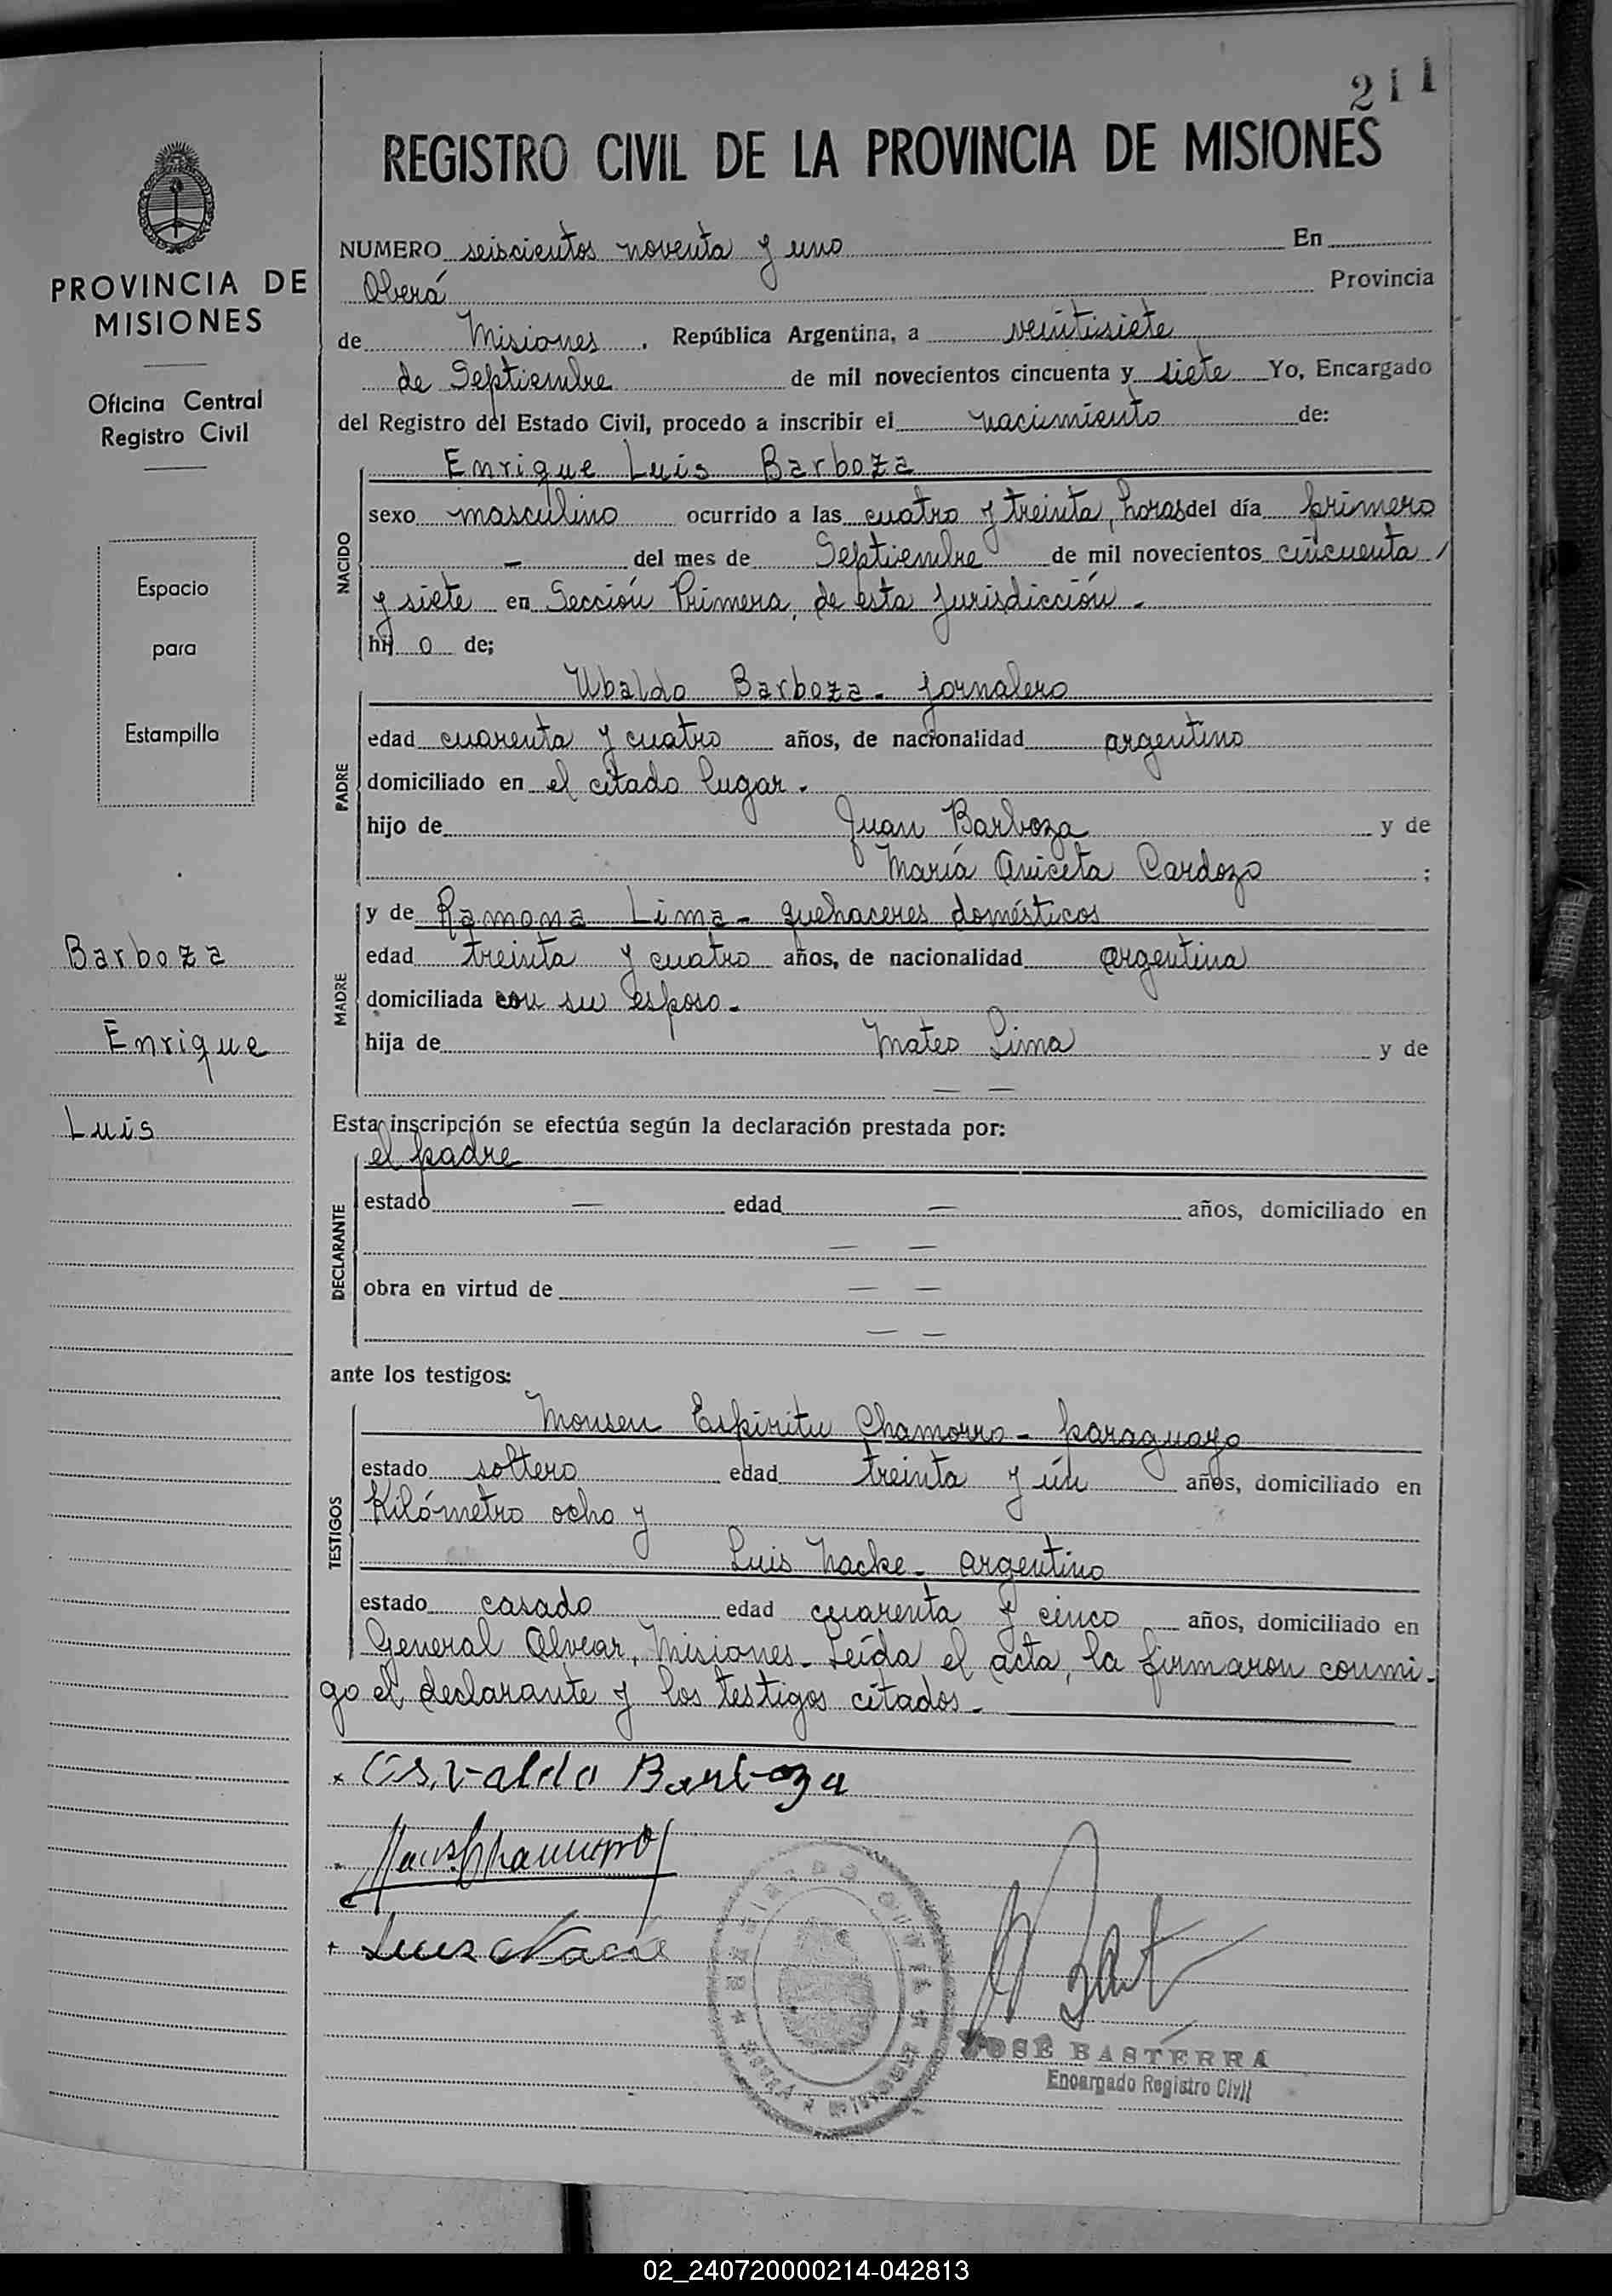 211
REGISTRO CIVIL DE LA PROVINCIA DE MISIONES
PROVINCIA DE
MISIONES
Oficina Central
Registro Civil
Espacio
para
Estampilla
Barboza
Enrique
Luis
NUMERO seiscientos noventa y uno En
Oberá Provincia
de Misiones, República Argentina, a veintisiete
de Septiembre de mil novecientos cincuenta y siete Yo, Encargado
del Registro del Estado Civil, procedo a inscribir el nacimiento de:
NACIDO
Enrique Luis Barboza
sexo masculino ocurrido a las cuatro y treinta, horas del día primero
- del mes de Septiembre de mil novecientos cincuenta
y siete en Sección Primera, de esta jurisdicción.-
hijo de;
PADRE
Ubaldo Barboza - jornalero
edad cuarenta y cuatro años, de nacionalidad argentino
domiciliado en el citado lugar.
hijo de Juan Barboza y de
María Aniceta Cardozo ;
MADRE
y de Ramona Lima - quehaceres domésticos
edad treinta y cuatro años, de nacionalidad argentina
domiciliada con su esposo.-
hija de Mateo Lima y de
— —
Esta inscripción se efectúa según la declaración prestada por:
DECLARANTE
el padre
estado — edad — años, domiciliado en
— —
obra en virtud de — —
— —
ante los testigos:
TESTIGOS
Monsen Espiritu Chamorro - paraguayo
estado soltero edad treinta y ún años, domiciliado en
Kilómetro ocho y
Luis Nacke - argentino
estado casado edad cuarenta y cinco años, domiciliado en
General Alvear, Misiones. Leída el acta, la firmaron conmi-
go el declarante y los testigos citados.-
x Osvaldo Barboza
Chamorro
+ Luis Nacke
REGISTRO CIVIL
OBERA MISIONES
JOSÉ BASTERRA
Encargado Registro Civil
02_240720000214-042813